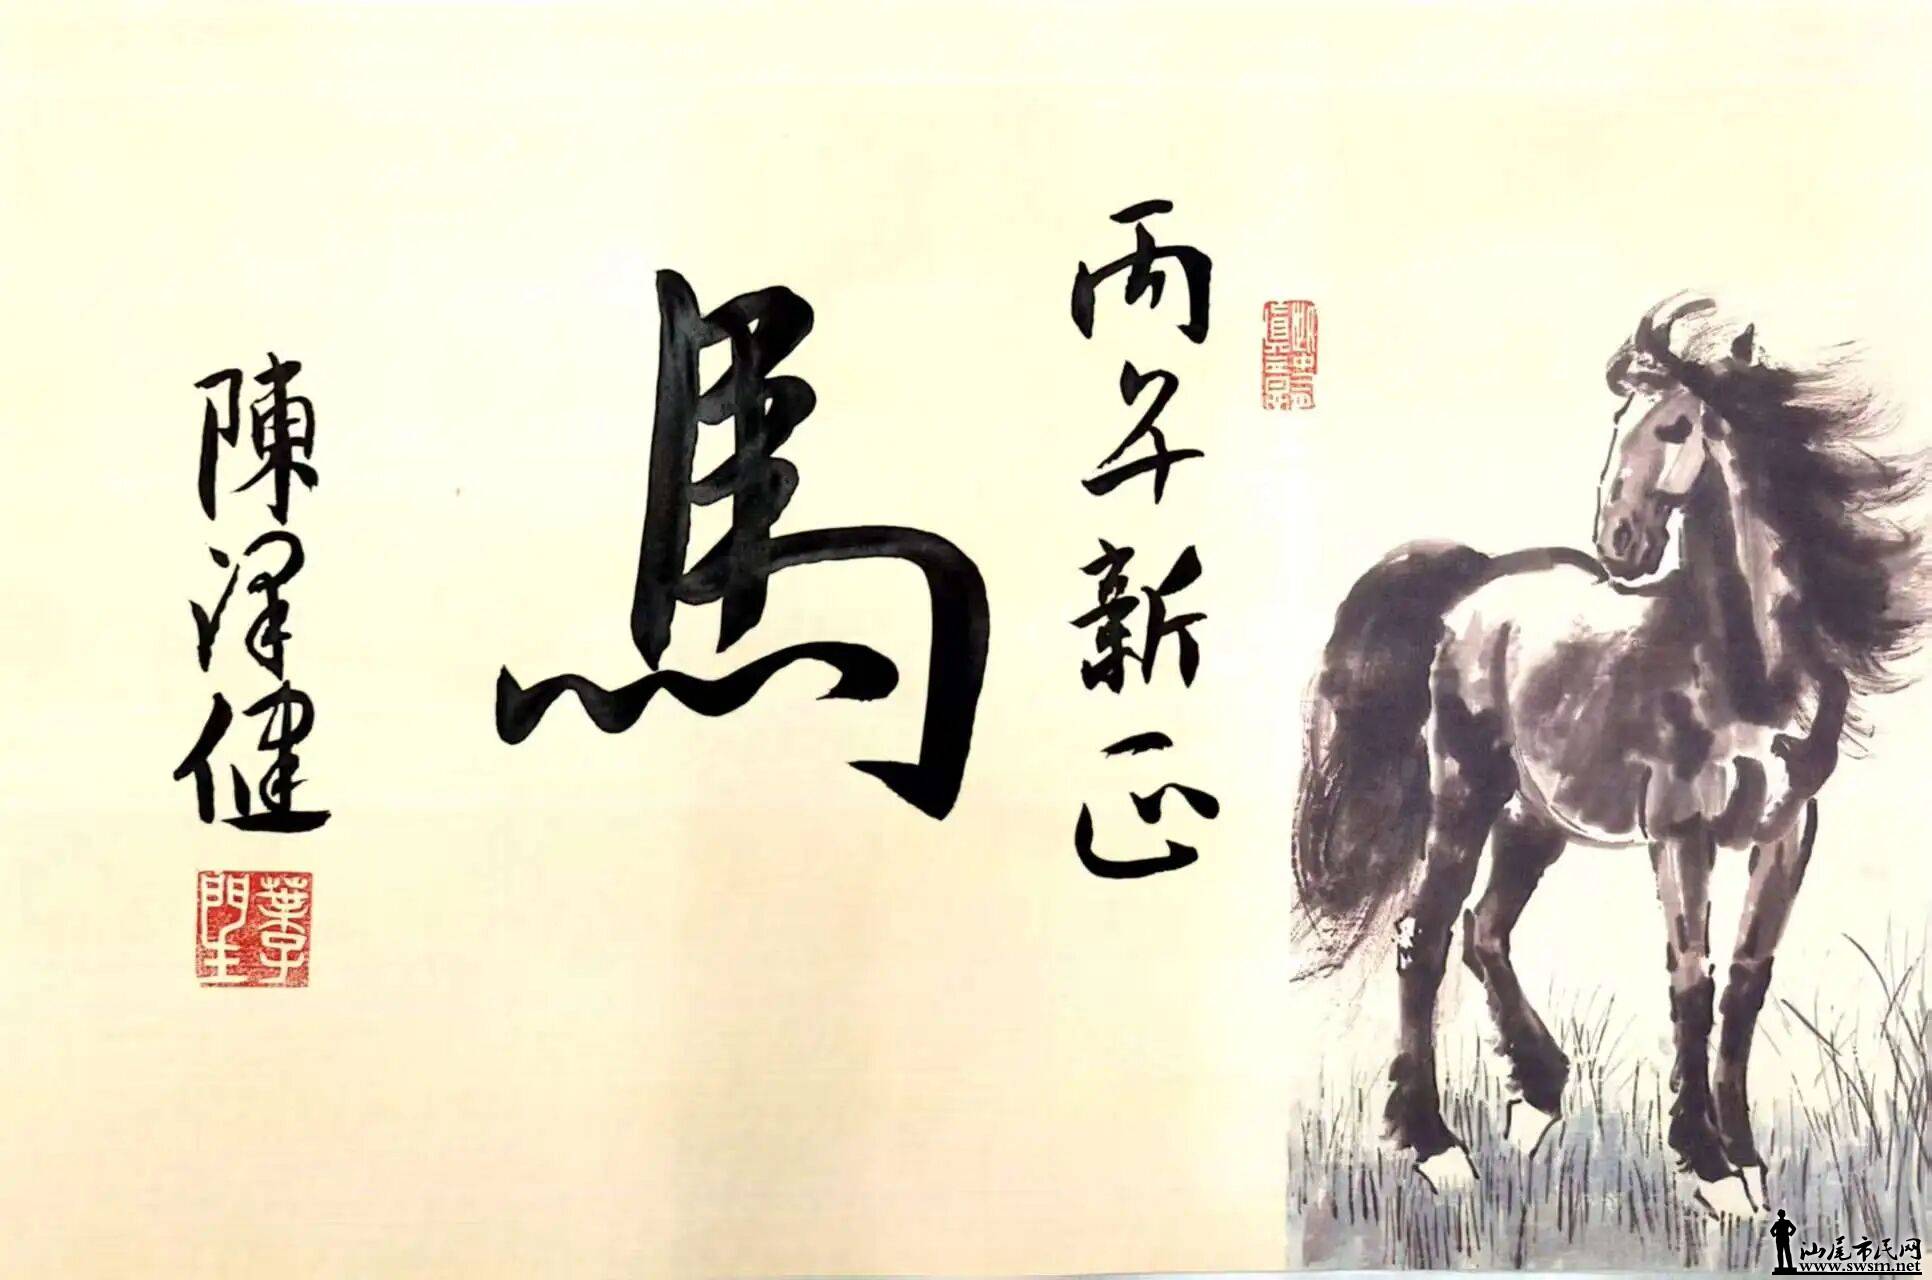 丙午新正
馬
陳澤健
葉子門生
汕尾市民网
www.swsm.net